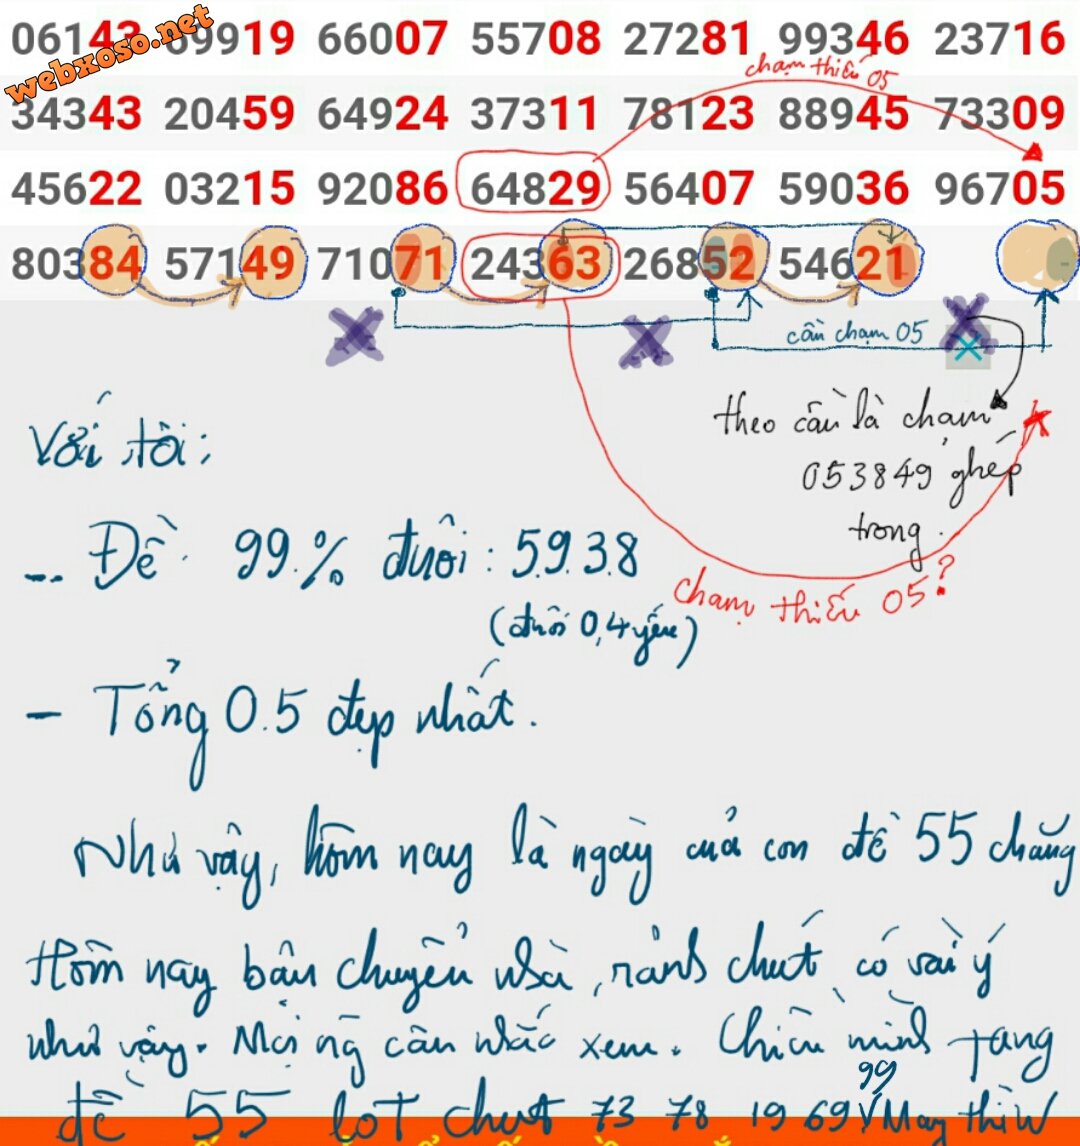 06143 69919 66007 55708 27281 99346 23716
webxoso.net
chạm thiếu 05
34343 20459 64924 37311 78123 88945 73309
45622 03215 92086 64829 56407 59036 96705
80384 57149 71071 24363 26852 54621
cần chạm 05
theo cầu là chạm
053849 ghép
trong.
Với tôi:
- Đề 99.% đuôi: 5.9.3.8
(đuôi 0,4 yếu)
chạm thiếu 05?
- Tổng 0.5 đẹp nhất.
Như vậy, hôm nay là ngày của con đề 55 chăng
Hôm nay bận chuyển nhà, rảnh chút có vài ý
như vậy. Mọi ng cân nhắc xem. Chiều mình tang
99
đề 55 lot chut 73 78 19 69 V May thì W